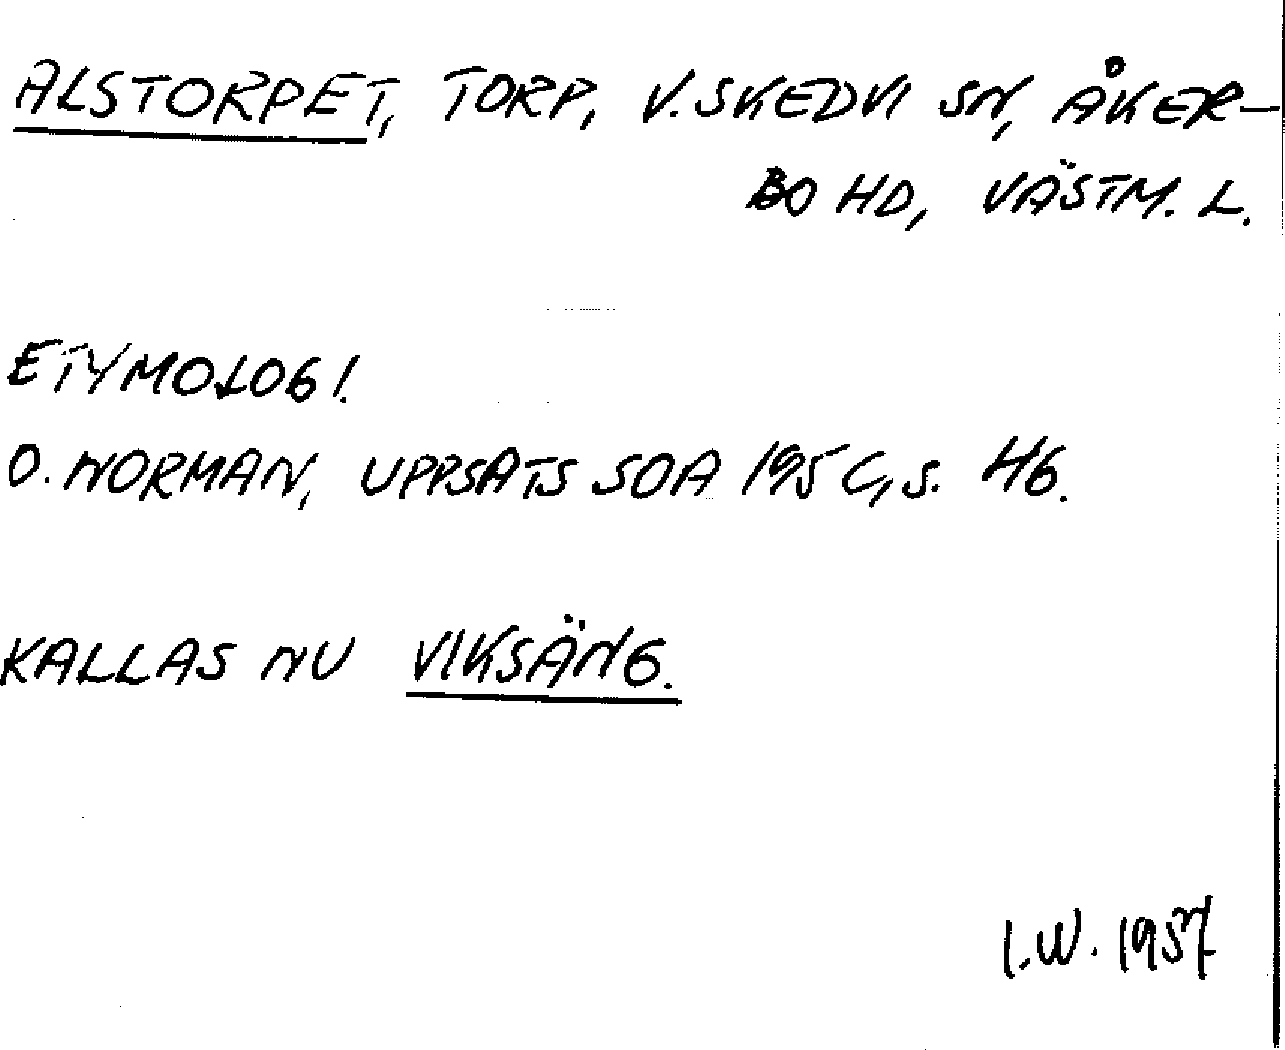 ALSTORPET, TORP, V. SKEDVI SN, ÅKER-
BO HD, VÄSTM. L.
ETYMOLOGI.
O. NORMAN, UPPSATS SOA 1956, S. 46.
KALLAS NU VIKSÄNG.
I.W. 1957